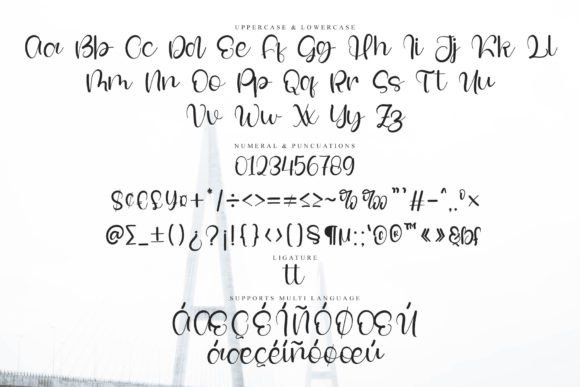 UPPERCASE & LOWERCASE
Aa Bb Cc Dd Ee Ff Gg Hh Ii Jj Kk Ll
Mm Nn Oo Pp Qq Rr Ss Tt Uu
Vv Ww Xx Yy Zz
NUMERAL & PUNCUATIONS
0123456789
$¢€£¥¤+*/÷<>=≠≤≥~%‰"'#-^,.°×
@∑_±()¿?¡!{}‹›[]§¶µ:;'©®™«»&
LIGATURE
tt
SUPPORTS MULTI LANGUAGE
ÁŒÇÉÍÑÓØŒÚ
áœçéíñóøœú